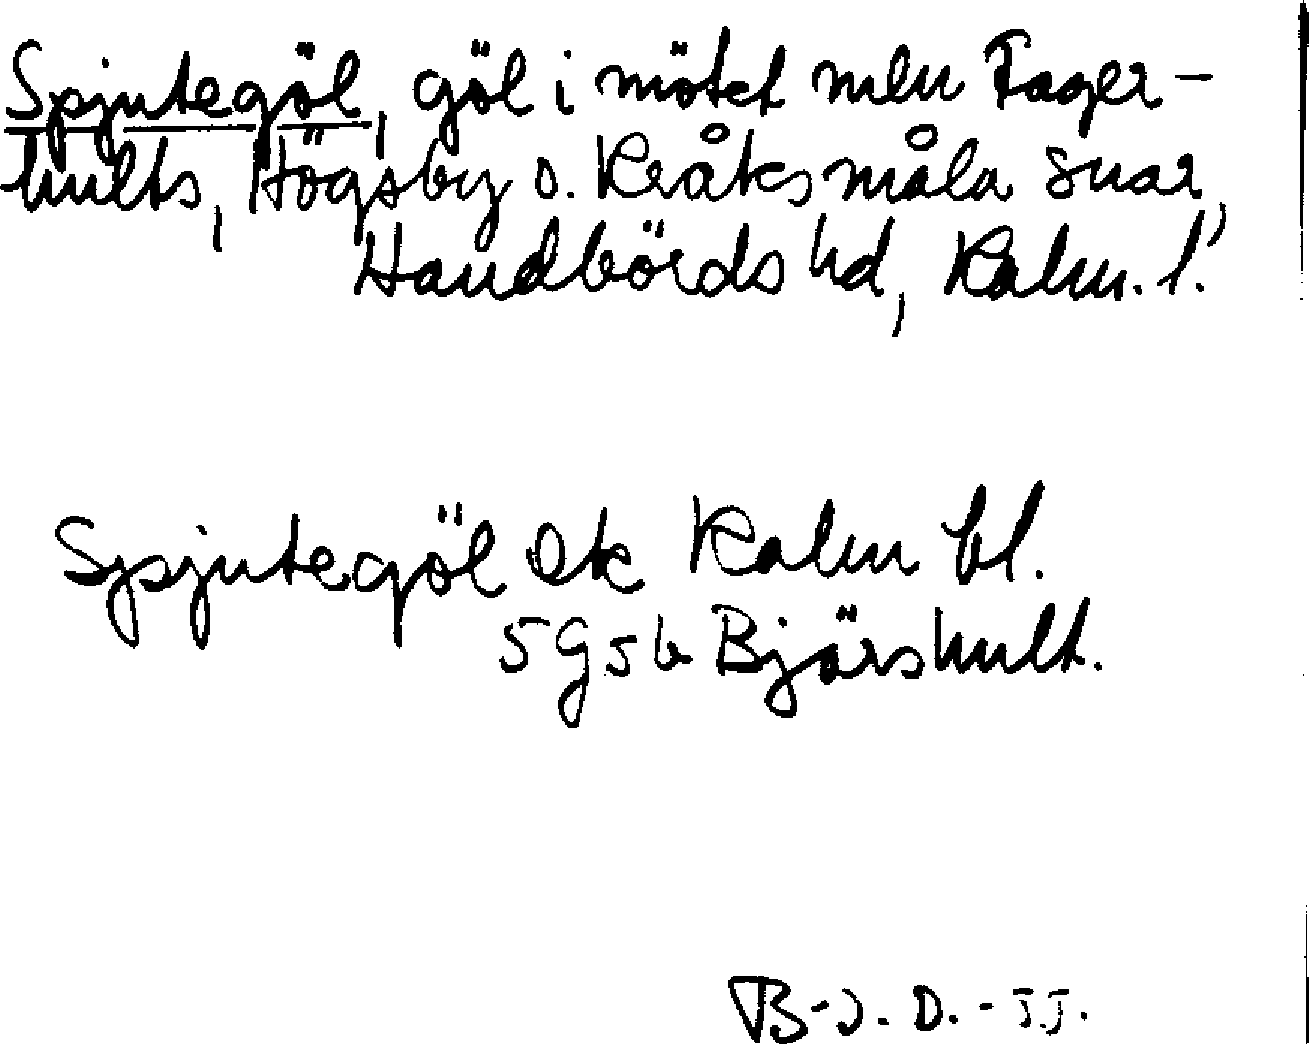 Spjutegöl, göl i mötet mln Fager-
hults, Högsby o. Kråksmåla snar,
Handbörds hd, Kalm. l.
Spjutegöl Ek Kalm bl.
5g5b Bjärshult.
B-J. D. - JJ.